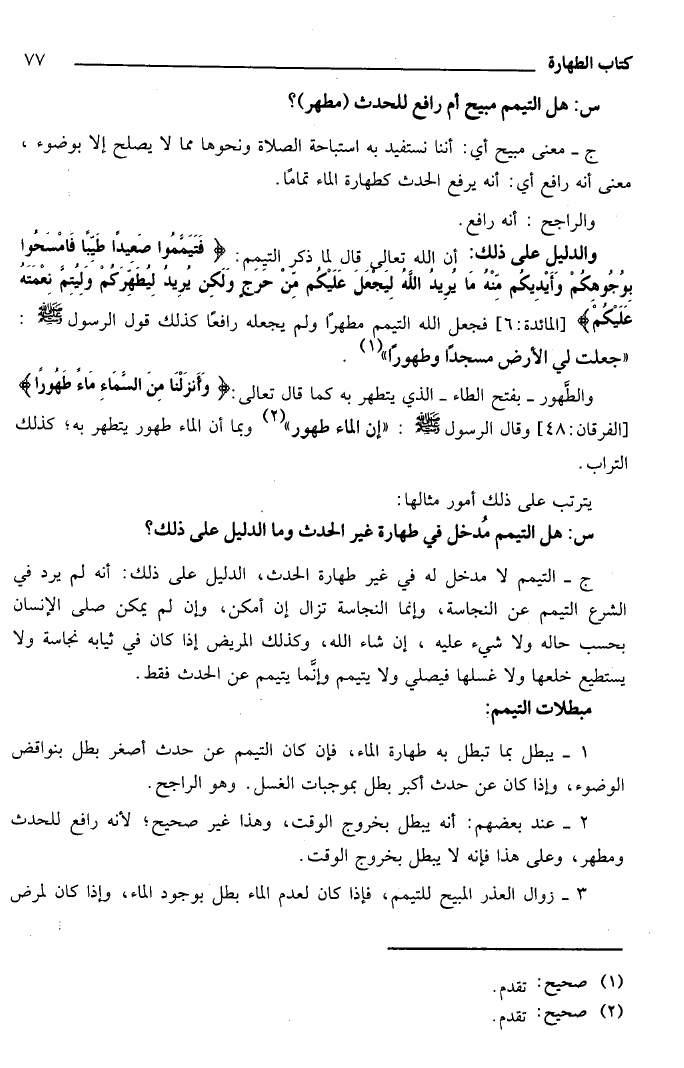 كتاب الطهارة ٧٧
س: هل التيمم مبيح أم رافع للحدث (مطهر)؟
ج ـ معنى مبيح أي: أننا نستفيد به استباحة الصلاة ونحوها مما لا يصلح إلا بوضوء ،
معنى أنه رافع أي: أنه يرفع الحدث كطهارة الماء تمامًا.
والراجح : أنه رافع.
والدليل على ذلك: أن الله تعالى قال لما ذكر التيمم: ﴿ فَتَيَمَّمُوا صَعِيدًا طَيِّبًا فَامْسَحُوا
بِوُجُوهِكُمْ وَأَيْدِيكُم مِّنْهُ مَا يُرِيدُ اللَّهُ لِيَجْعَلَ عَلَيْكُم مِّنْ حَرَجٍ وَلَكِن يُرِيدُ لِيُطَهِّرَكُمْ وَلِيُتِمَّ نِعْمَتَهُ
عَلَيْكُمْ﴾ [المائدة:٦] فجعل الله التيمم مطهرًا ولم يجعله رافعًا كذلك قول الرسول ﷺ :
«جعلت لي الأرض مسجدًا وطهورًا»(١) .
والطَّهور ـ بفتح الطاء ـ الذي يتطهر به كما قال تعالى:﴿ وَأَنزَلْنَا مِنَ السَّمَاءِ مَاءً طَهُورًا﴾
[الفرقان:٤٨] وقال الرسول ﷺ : «إن الماء طهور»(٢) وبما أن الماء طهور يتطهر به؛ كذلك
التراب.
يترتب على ذلك أمور مثالها:
س: هل التيمم مُدخل في طهارة غير الحدث وما الدليل على ذلك؟
ج ـ التيمم لا مدخل له في غير طهارة الحدث، الدليل على ذلك: أنه لم يرد في
الشرع التيمم عن النجاسة، وإنما النجاسة تزال إن أمكن، وإن لم يمكن صلى الإنسان
بحسب حاله ولا شيء عليه ، إن شاء الله، وكذلك المريض إذا كان في ثيابه نجاسة ولا
يستطيع خلعها ولا غسلها فيصلي ولا يتيمم وإنَّما يتيمم عن الحدث فقط.
مبطلات التيمم:
١ ـ يبطل بما تبطل به طهارة الماء، فإن كان التيمم عن حدث أصغر بطل بنواقض
الوضوء، وإذا كان عن حدث أكبر بطل بموجبات الغسل. وهو الراجح.
٢ ـ عند بعضهم: أنه يبطل بخروج الوقت، وهذا غير صحيح؛ لأنه رافع للحدث
ومطهر، وعلى هذا فإنه لا يبطل بخروج الوقت.
٣ ـ زوال العذر المبيح للتيمم، فإذا كان لعدم الماء بطل بوجود الماء، وإذا كان لمرض
(١) صحيح: تقدم.
(٢) صحيح: تقدم.